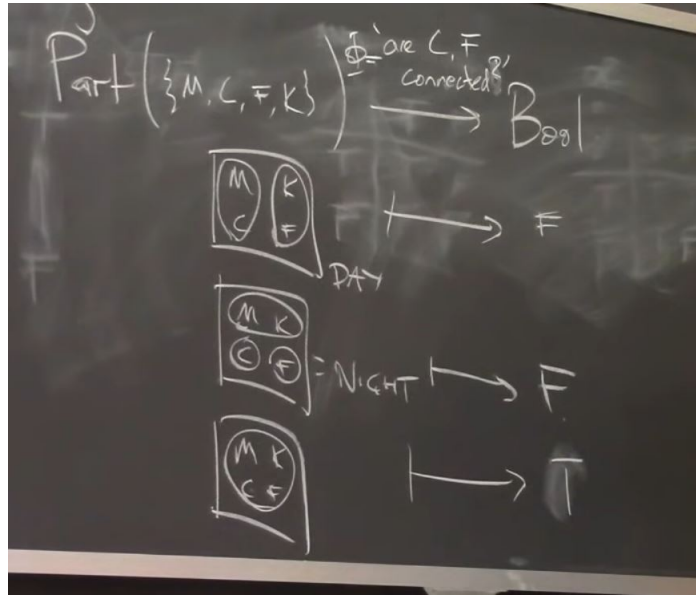 Part({M, C, F, K}) Φ= 'are C, F connected?' → Bool
M K
C F
DAY ↦ F
M K
C F
= NIGHT ↦ F
M K
C F
↦ T